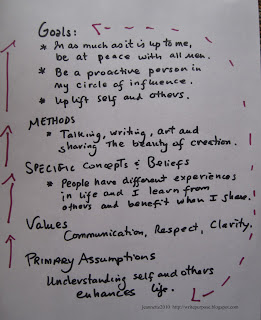 Goals:
* In as much as it is up to me,
be at peace with all men.
* Be a proactive person in
my circle of influence.
* Uplift self and others.
METHODS
* Talking, writing, art and
sharing the beauty of creation.
SPECIFIC CONCEPTS & BELIEFS
* People have different experiences
in life and I learn from
others and benefit when I share.
Values
Communication, Respect, Clarity.
PRIMARY ASSUMPTIONS
Understanding self and others
enhances life.